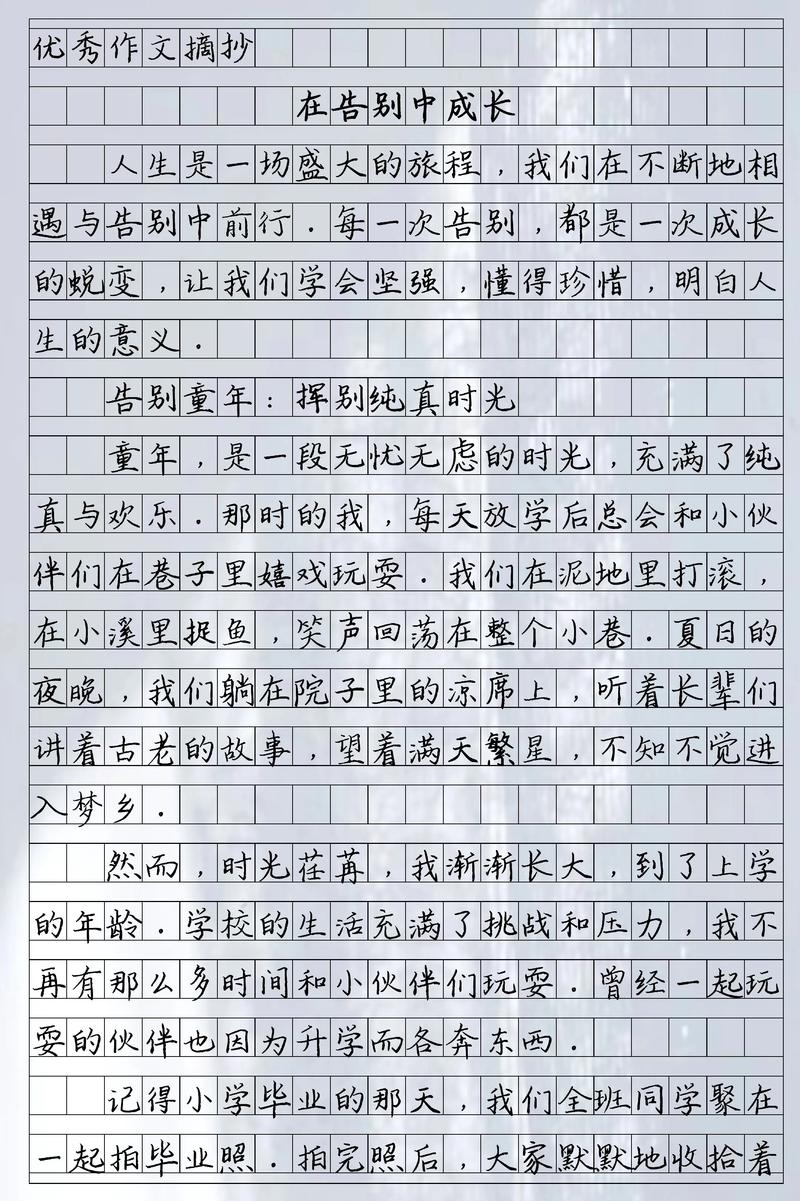 优秀作文摘抄
在告别中成长
人生是一场盛大的旅程，我们在不断地相
遇与告别中前行．每一次告别，都是一次成长
的蜕变，让我们学会坚强，懂得珍惜，明白人
生的意义．
告别童年：挥别纯真时光
童年，是一段无忧无虑的时光，充满了纯
真与欢乐．那时的我，每天放学后总会和小伙
伴们在巷子里嬉戏玩耍．我们在泥地里打滚，
在小溪里捉鱼，笑声回荡在整个小巷．夏日的
夜晚，我们躺在院子里的凉席上，听着长辈们
讲着古老的故事，望着满天繁星，不知不觉进
入梦乡．
然而，时光荏苒，我渐渐长大，到了上学
的年龄．学校的生活充满了挑战和压力，我不
再有那么多时间和小伙伴们玩耍．曾经一起玩
耍的伙伴也因为升学而各奔东西．
记得小学毕业的那天，我们全班同学聚在
一起拍毕业照．拍完照后，大家默默地收拾着